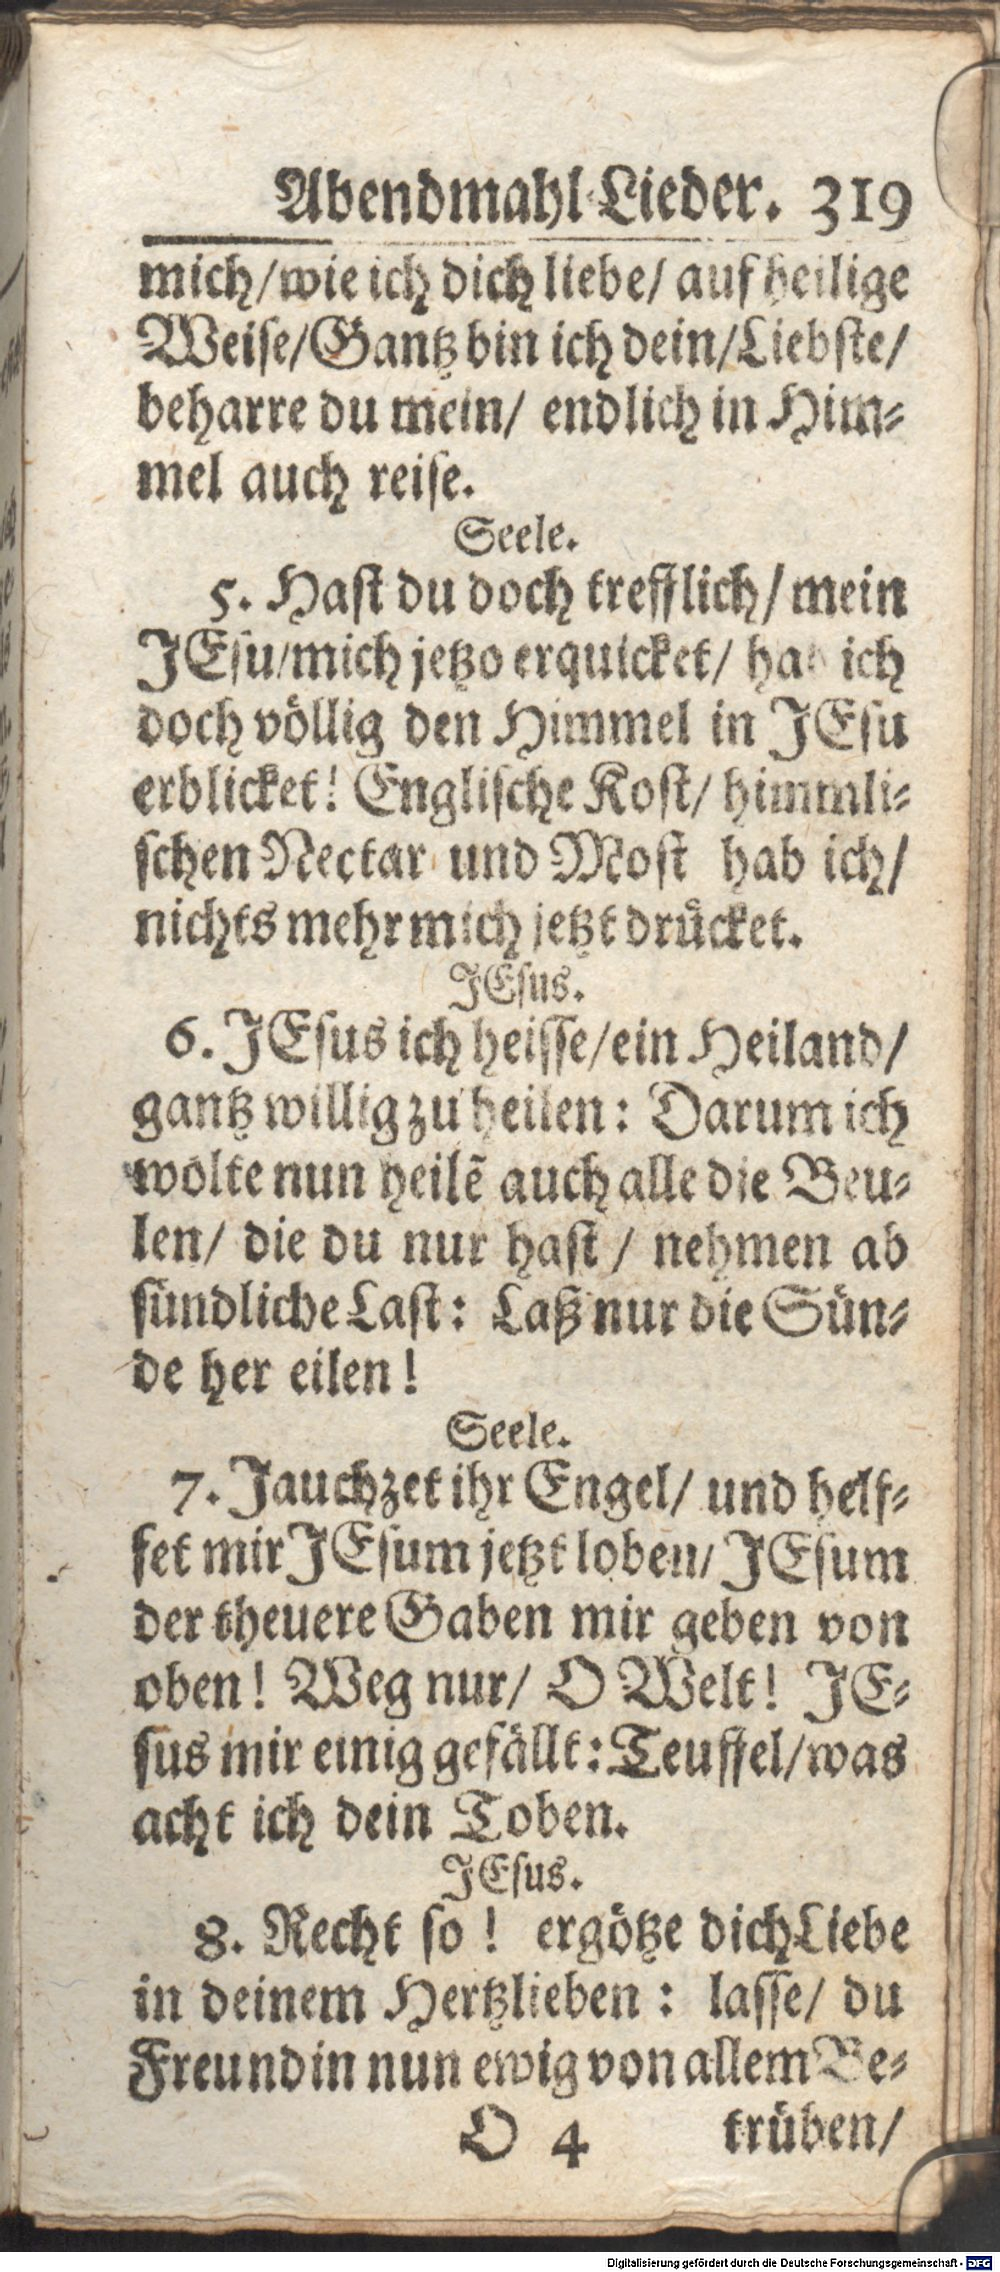 Abendmahl-Lieder. 319
mich/wie ich dich liebe/ auf heilige
Weise/Gantz bin ich dein/Liebste/
beharre du mein/ endlich in Him-
mel auch reise.
Seele.
5. Hast du doch trefflich/ mein
JEsu/mich jetzo erquicket/ hab ich
doch völlig den Himmel in JEsu
erblicket! Englische Kost/ himmli-
schen Nectar und Most hab ich/
nichts mehr mich jetzt drücket.
JEsus.
6. JEsus ich heisse/ein Heiland/
gantz willig zu heilen: Darum ich
wolte nun heilẽ auch alle die Beu-
len/ die du nur hast / nehmen ab
sündliche Last: Laß nur die Sün-
de her eilen!
Seele.
7. Jauchzet ihr Engel/ und helf-
fet mir JEsum jetzt loben/ JEsum
der theuere Gaben mir geben von
oben! Weg nur/ O Welt! JE-
sus mir einig gefällt: Teuffel/was
acht ich dein Toben.
JEsus.
8. Recht so! ergötze dich Liebe
in deinem Hertzlieben: lasse/ du
Freundin nun ewig von allem Be-
O 4 trüben/
Digitalisierung gefördert durch die Deutsche Forschungsgemeinschaft - DFG